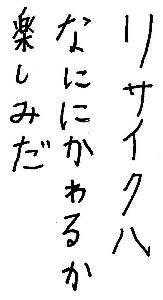 リサイクハ
なにに かわるか
楽しみだ